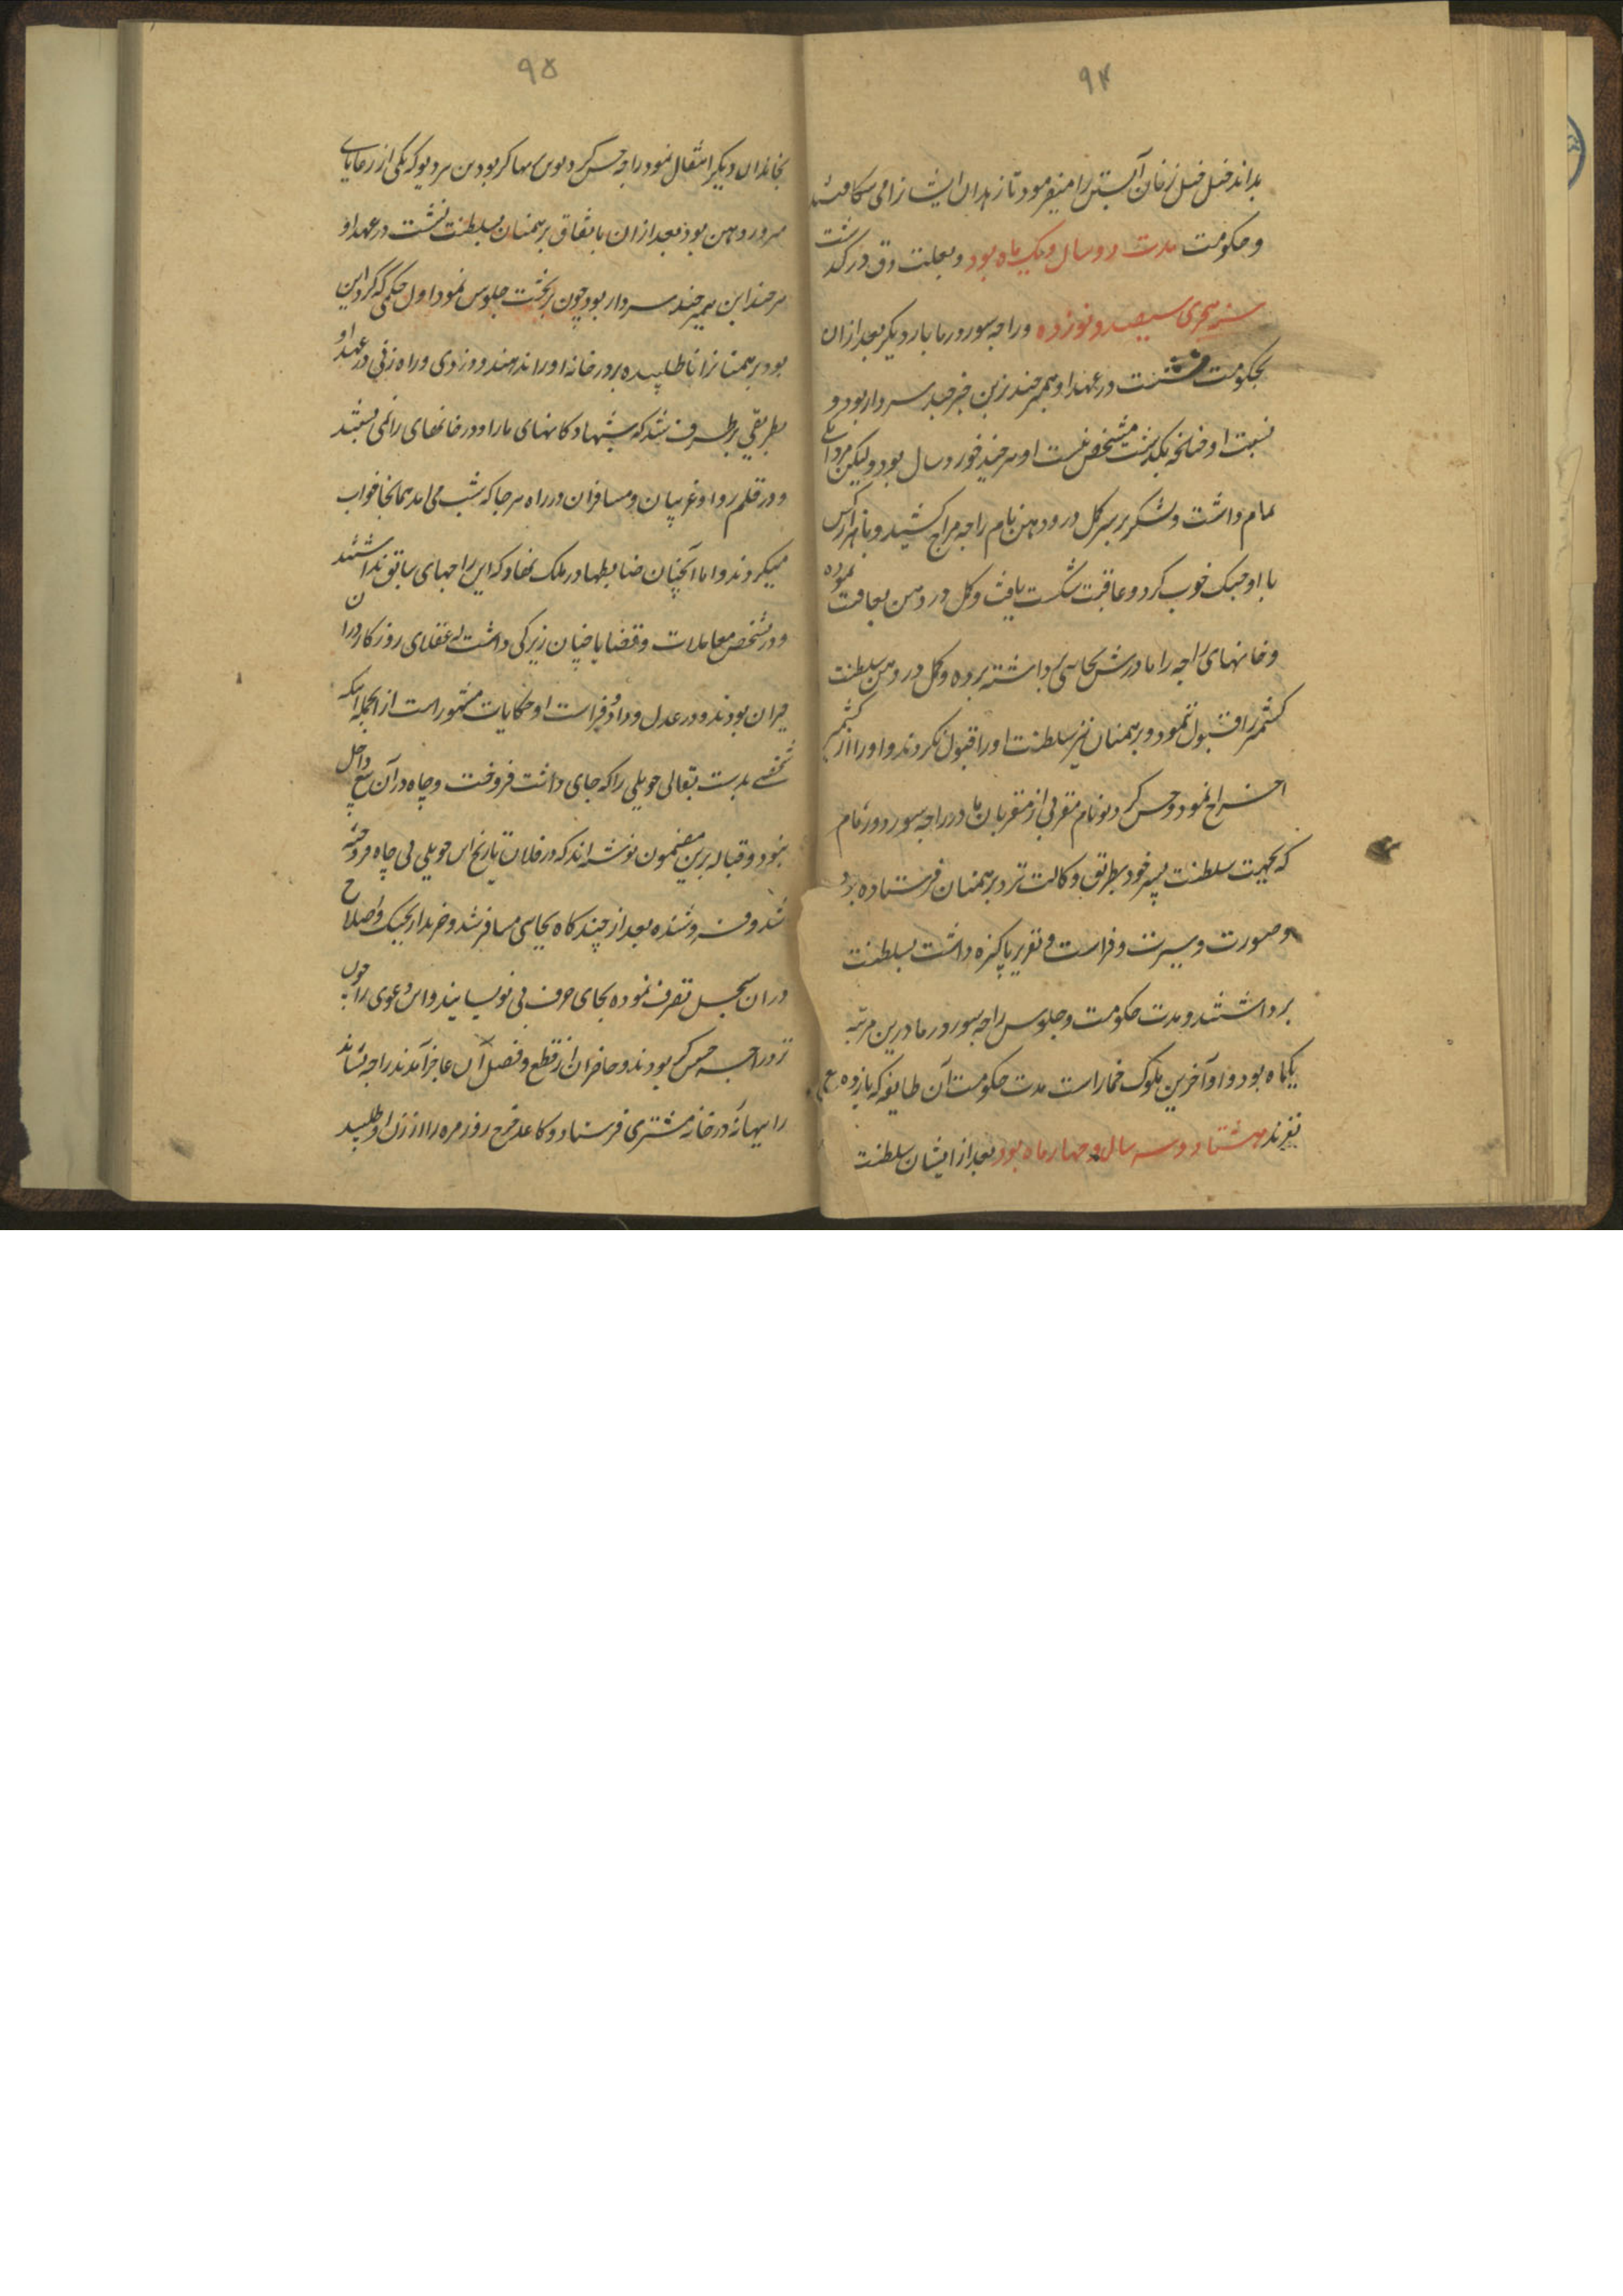 ۹۴
بداند فیل فیل زنان آبستن را میفرمود تا زهدان ایشانرا می شکافتند
و حکومت مدت دو سال و یک ماه بود و بعلت دق در گذشت
سنه هجری سیصد و نوزده و راجه سورورما بار دیگر بعد ازان
بحکومت نشست در عهد او همیر چند زین خبر چند سردار بود و
نسبت او چنانچه بکدشت مشخص نیست او هر چند خورد سال بود ولیکن مردانگی
تمام داشت و لشکر بر سر کل درودهن نام راجه مراج کشید و بانهراس
با او جنک خوب کرد و عاقبت شکست یافت و کل دردهن تعاقب نموده
و خانهای راجه را مادرش بجای برداشته برده و کل دردهن سلطنت
کشمیر را قبول ننمود و برهمنان نیز سلطنت او را قبول نکردند و او را از کشمیر
اخراج نمود و جس کردیو نام مقربی از مقربان مادر راجه سورورما نام
که بجهت سلطنت پسر خود بطریق وکالت نزد برهمنان فرستاده بود
و صورت و سیرت و فراست و تقریر پاکیزه داشت بسلطنت
برداشتند و مدت حکومت و جلوس راجه سورورما درین مرتبه
یکماه بود و او آخرین ملوک خمار است مدت حکومت آن طایفه که یازده
نفرند هشتاد و سه سال و چهار ماه بود بعد از ایشان سلطنت
۹۵
بخاندان دیگر انتقال نمود راجه جس کردیوس بهاکر بودن سردیو که یکی از رعایای
سروردهن بود بعد ازان باتفاق برهمنان بسلطنت نشست در عهد او
هر چند این همیر چند سردار بود چون بر تخت جلوس نمود اول حکمی که کرد این
بود برهمنانرا ناطلبیده بدر خانه او راند هند و دزدی و راه زنی در عهد او
بطریقی بر طرف شد که شبها دکانهای بازار و در خانهای را نمی بستند
و در قلم رو او غریبان و مسافران در راه هر جا که شب می امد همانجا خواب
میکردند و اما آنچنان ضابطها در ملک نهاد که این راجهای سابق نداشتند
و در تشخص معاملات و قضایا چنان زیرکی داشت که عقلای روزکار دران
حیران بودند و در عدل و داد و فراست او حکایات مشهور است از انجمله اینکه
شخصی بدست بقالی حویلی را که جای داشت فروخت و چاه در آن بیع داخل
نبود و قباله برین مضمون نوشته اند که در فلان تاریخ این حویلی بی چاه فروخته
شد و فروشنده بعد از چند کاه بجایی مسافر شد و خریدار بحیک و اصلاح
دران سجل تصرف نموده بجای حرف بی نویسانیدند و این دعوی را چون
نزد راجه جس کر بودند و حاضران از قطع و فصل آن عاجز آمدند راجه نشاند
را ببهانه در خانه مشتری فرستاد و کاغذ خرج روز مره را از زن او طلبید